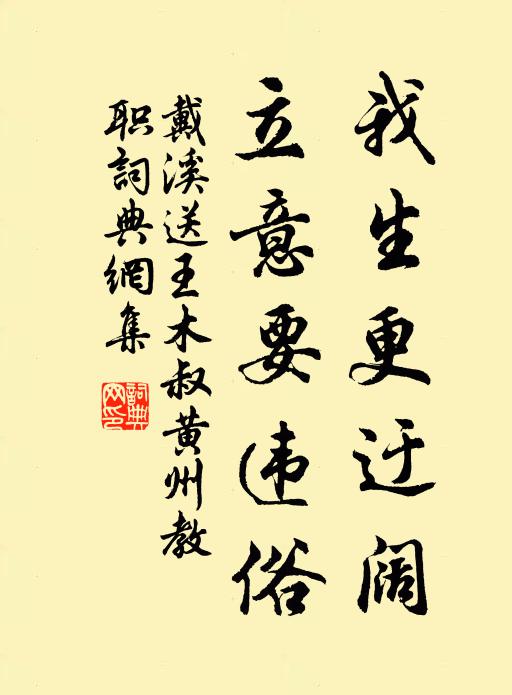 我生更迂阔
立意要违俗
戴溪送王木叔黄州教
职詞典網集
詞典
网印